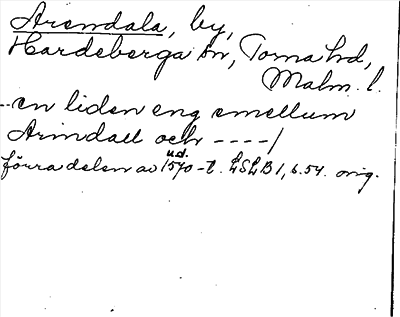 Arendala, by,
Hardeberga sn, Torna hd,
Malm. l.
-- en liden eng emellum
Arindall och ----/
u.d.
förra delen av 1570-t. LSLB 1, s. 54. orig.